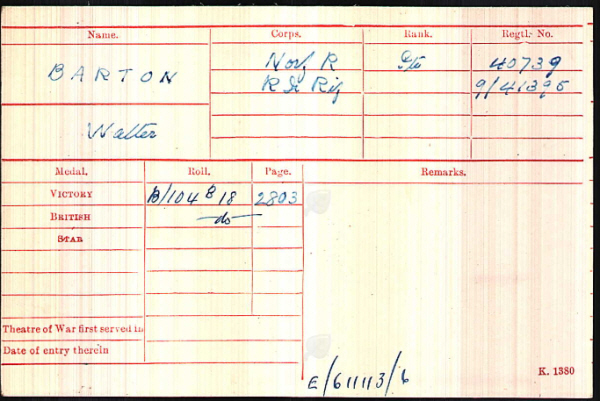 Name. Corps. Rank. Regtl. No.
BARTON Norf R Pte 40739
R Ir Rif 9/41395
Walter
Medal. Roll. Page. Remarks.
VICTORY B/104 B 18 2803
BRITISH —do—
STAR
Theatre of War first served in
Date of entry therein
K. 1380